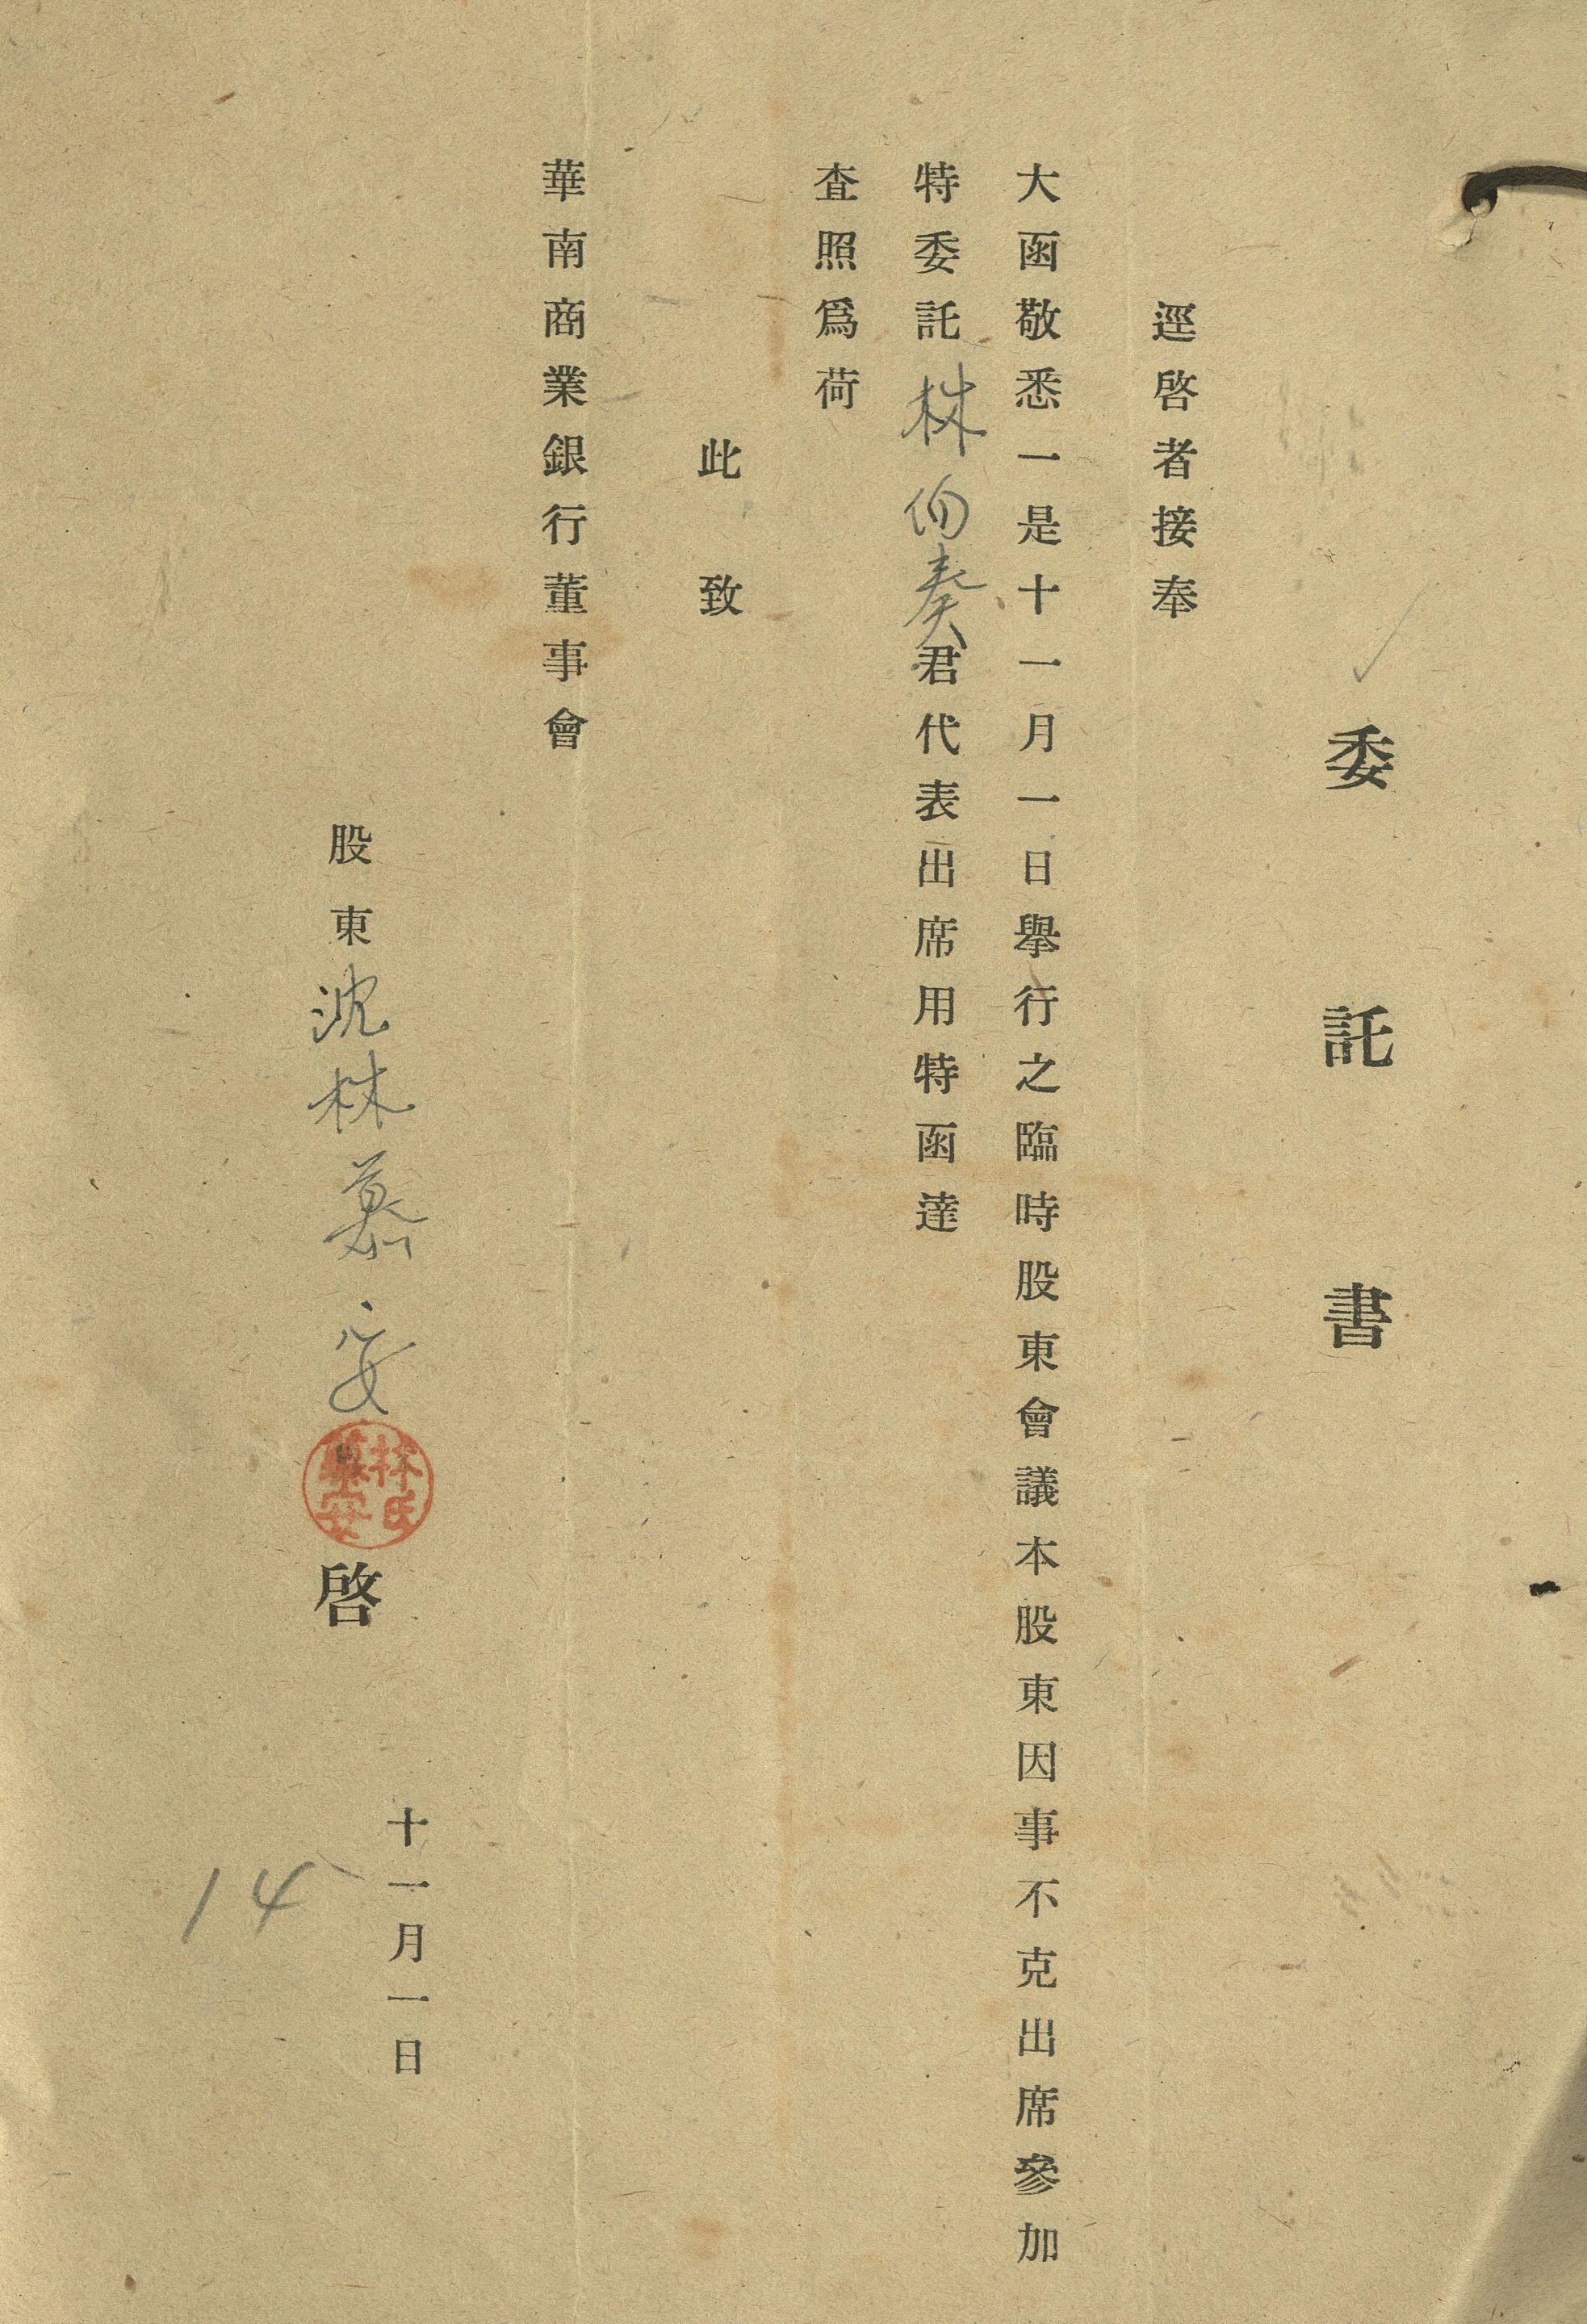 委託書
逕啓者接奉
大函敬悉一是十一月一日擧行之臨時股東會議本股東因事不克出席參加
特委託林伯奏君代表出席用特函達
査照爲荷
此致
華南商業銀行董事會
股東沈林慕安啓
林氏慕安
十一月一日
14